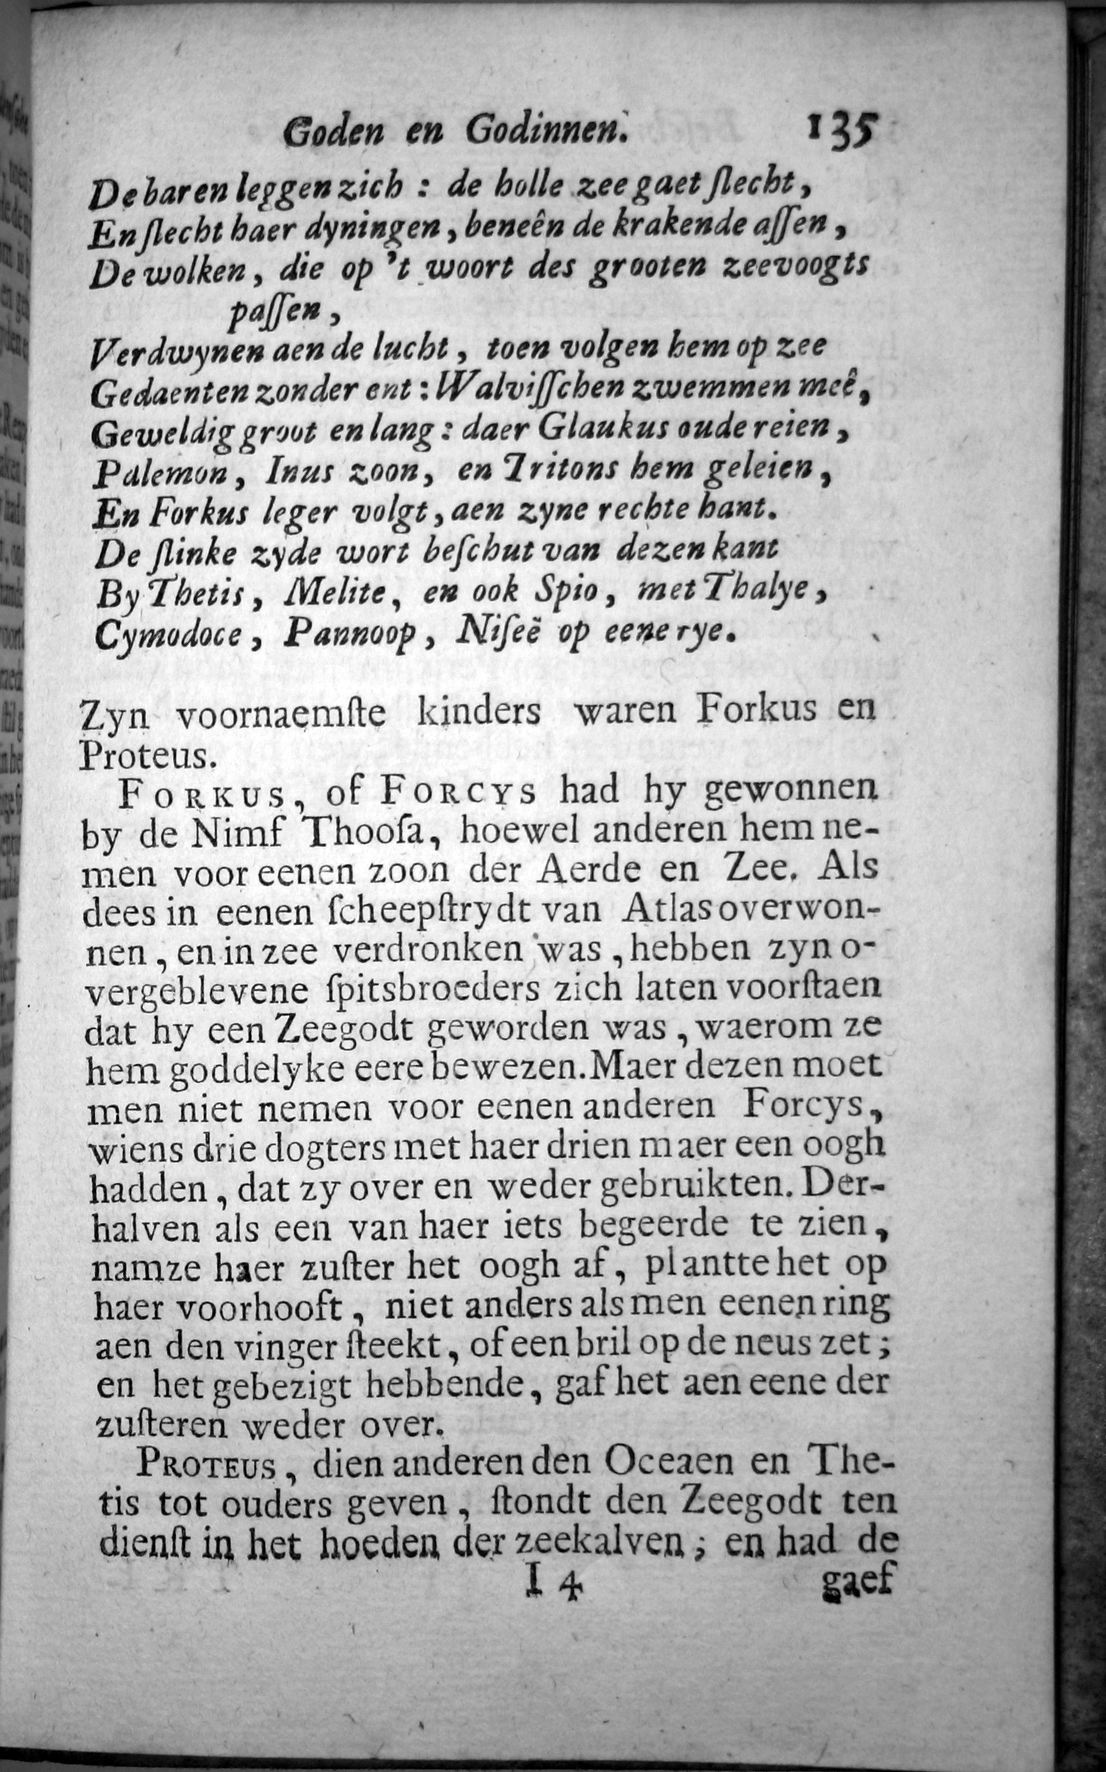 Goden en Godinnen. 135
De baren leggen zich : de holle zee gaet ſlecht,
En ſlecht haer dyningen, beneên de krakende aſſen,
De wolken, die op 't woort des grooten zeevoogts
paſſen,
Verdwynen aen de lucht, toen volgen hem op zee
Gedaenten zonder ent : Walviſſchen zwemmen meê,
Geweldig groot en lang : daer Glaukus oude reien,
Palemon, Inus zoon, en Tritons hem geleien,
En Forkus leger volgt, aen zyne rechte hant.
De ſlinke zyde wort beſchut van dezen kant
By Thetis, Melite, en ook Spio, met Thalye,
Cymodoce, Pannoop, Niſeë op eene rye.
Zyn voornaemſte kinders waren Forkus en
Proteus.
FORKUS, of FORCYS had hy gewonnen
by de Nimf Thooſa, hoewel anderen hem ne-
men voor eenen zoon der Aerde en Zee. Als
dees in eenen ſcheepſtrydt van Atlas overwon-
nen, en in zee verdronken was, hebben zyn o-
vergeblevene ſpitsbroeders zich laten voorſtaen
dat hy een Zeegodt geworden was, waerom ze
hem goddelyke eere bewezen. Maer dezen moet
men niet nemen voor eenen anderen Forcys,
wiens drie dogters met haer drien maer een oogh
hadden, dat zy over en weder gebruikten. Der-
halven als een van haer iets begeerde te zien,
nam ze haer zuſter het oogh af, plantte het op
haer voorhooft, niet anders als men eenen ring
aen den vinger ſteekt, of een bril op de neus zet;
en het gebezigt hebbende, gaf het aen eene der
zuſteren weder over.
PROTEUS, dien anderen den Oceaen en The-
tis tot ouders geven, ſtondt den Zeegodt ten
dienſt in het hoeden der zeekalven; en had de
I 4 gaef